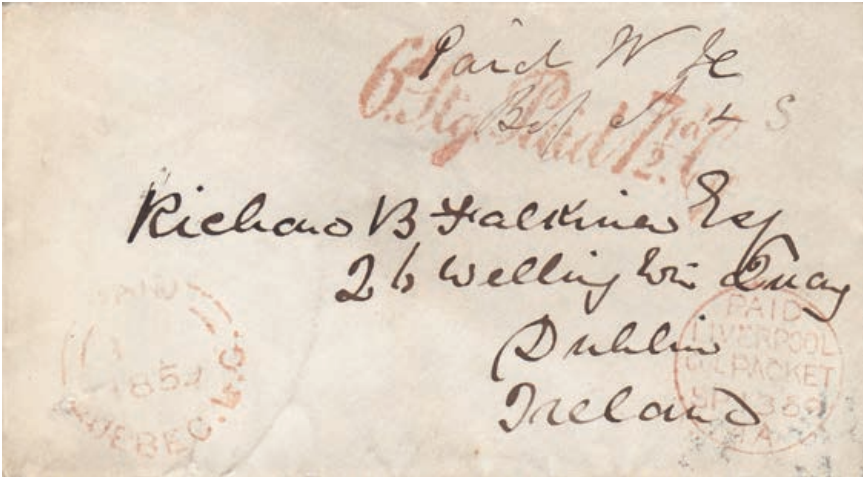 Paid W Je
6d. Stg. Paid 7½d. Cy
Richard B Falkiner Esq
26 Wellington Quay
Dublin
Ireland
1854
QUEBEC. L.C.
PAID
LIVERPOOL
COL PACKET